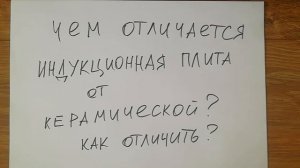 ЧЕМ ОТЛИЧАЕТСЯ
ИНДУКЦИОННАЯ ПЛИТА
ОТ
КЕРАМИЧЕСКОЙ?
КАК ОТЛИЧИТЬ?